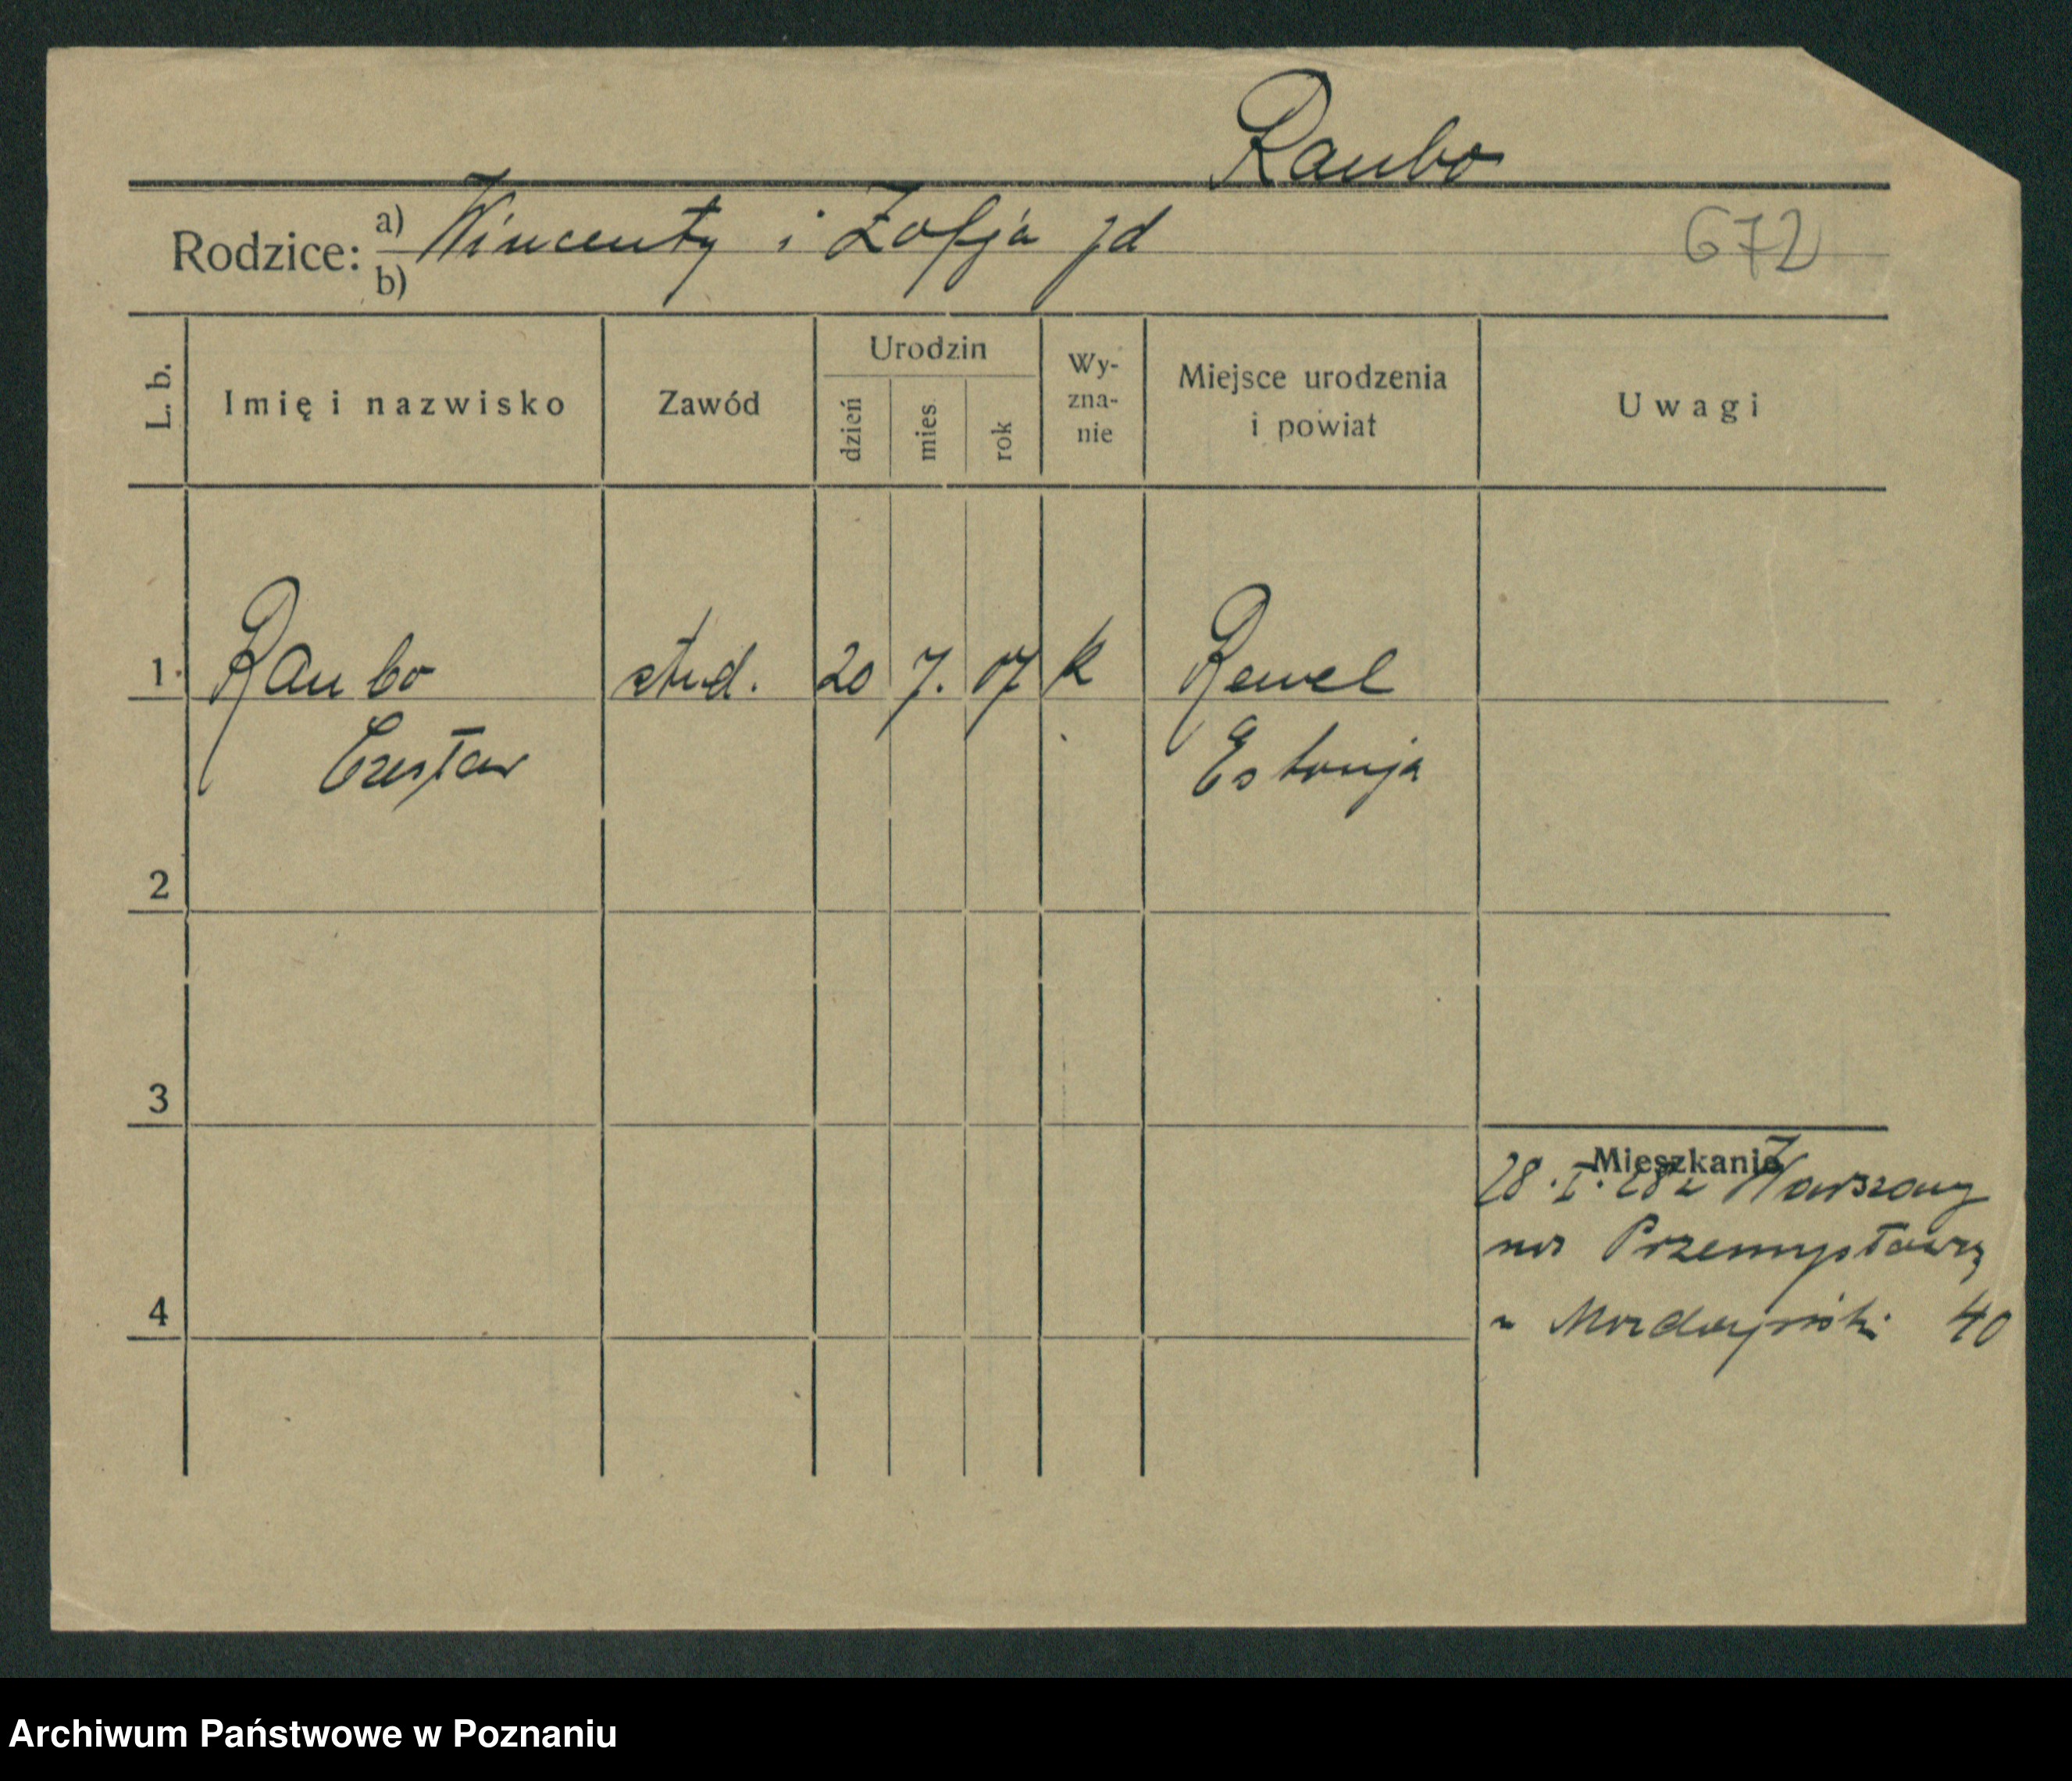 Raubo
Rodzice: a) Wincenty i Zofja jd
b)
672
L. b.
Imię i nazwisko
Zawód
Urodzin
dzień
mies
rok
Wy-
zna-
nie
Miejsce urodzenia
i powiat
Uwagi
1 Raubo stud. 20 7. 07 k Rewel
Czesław Estonja
2
3
Mieszkanie
28.I.28 z Warszawy
na Przemysłową
4
u 40
Archiwum Państwowe w Poznaniu